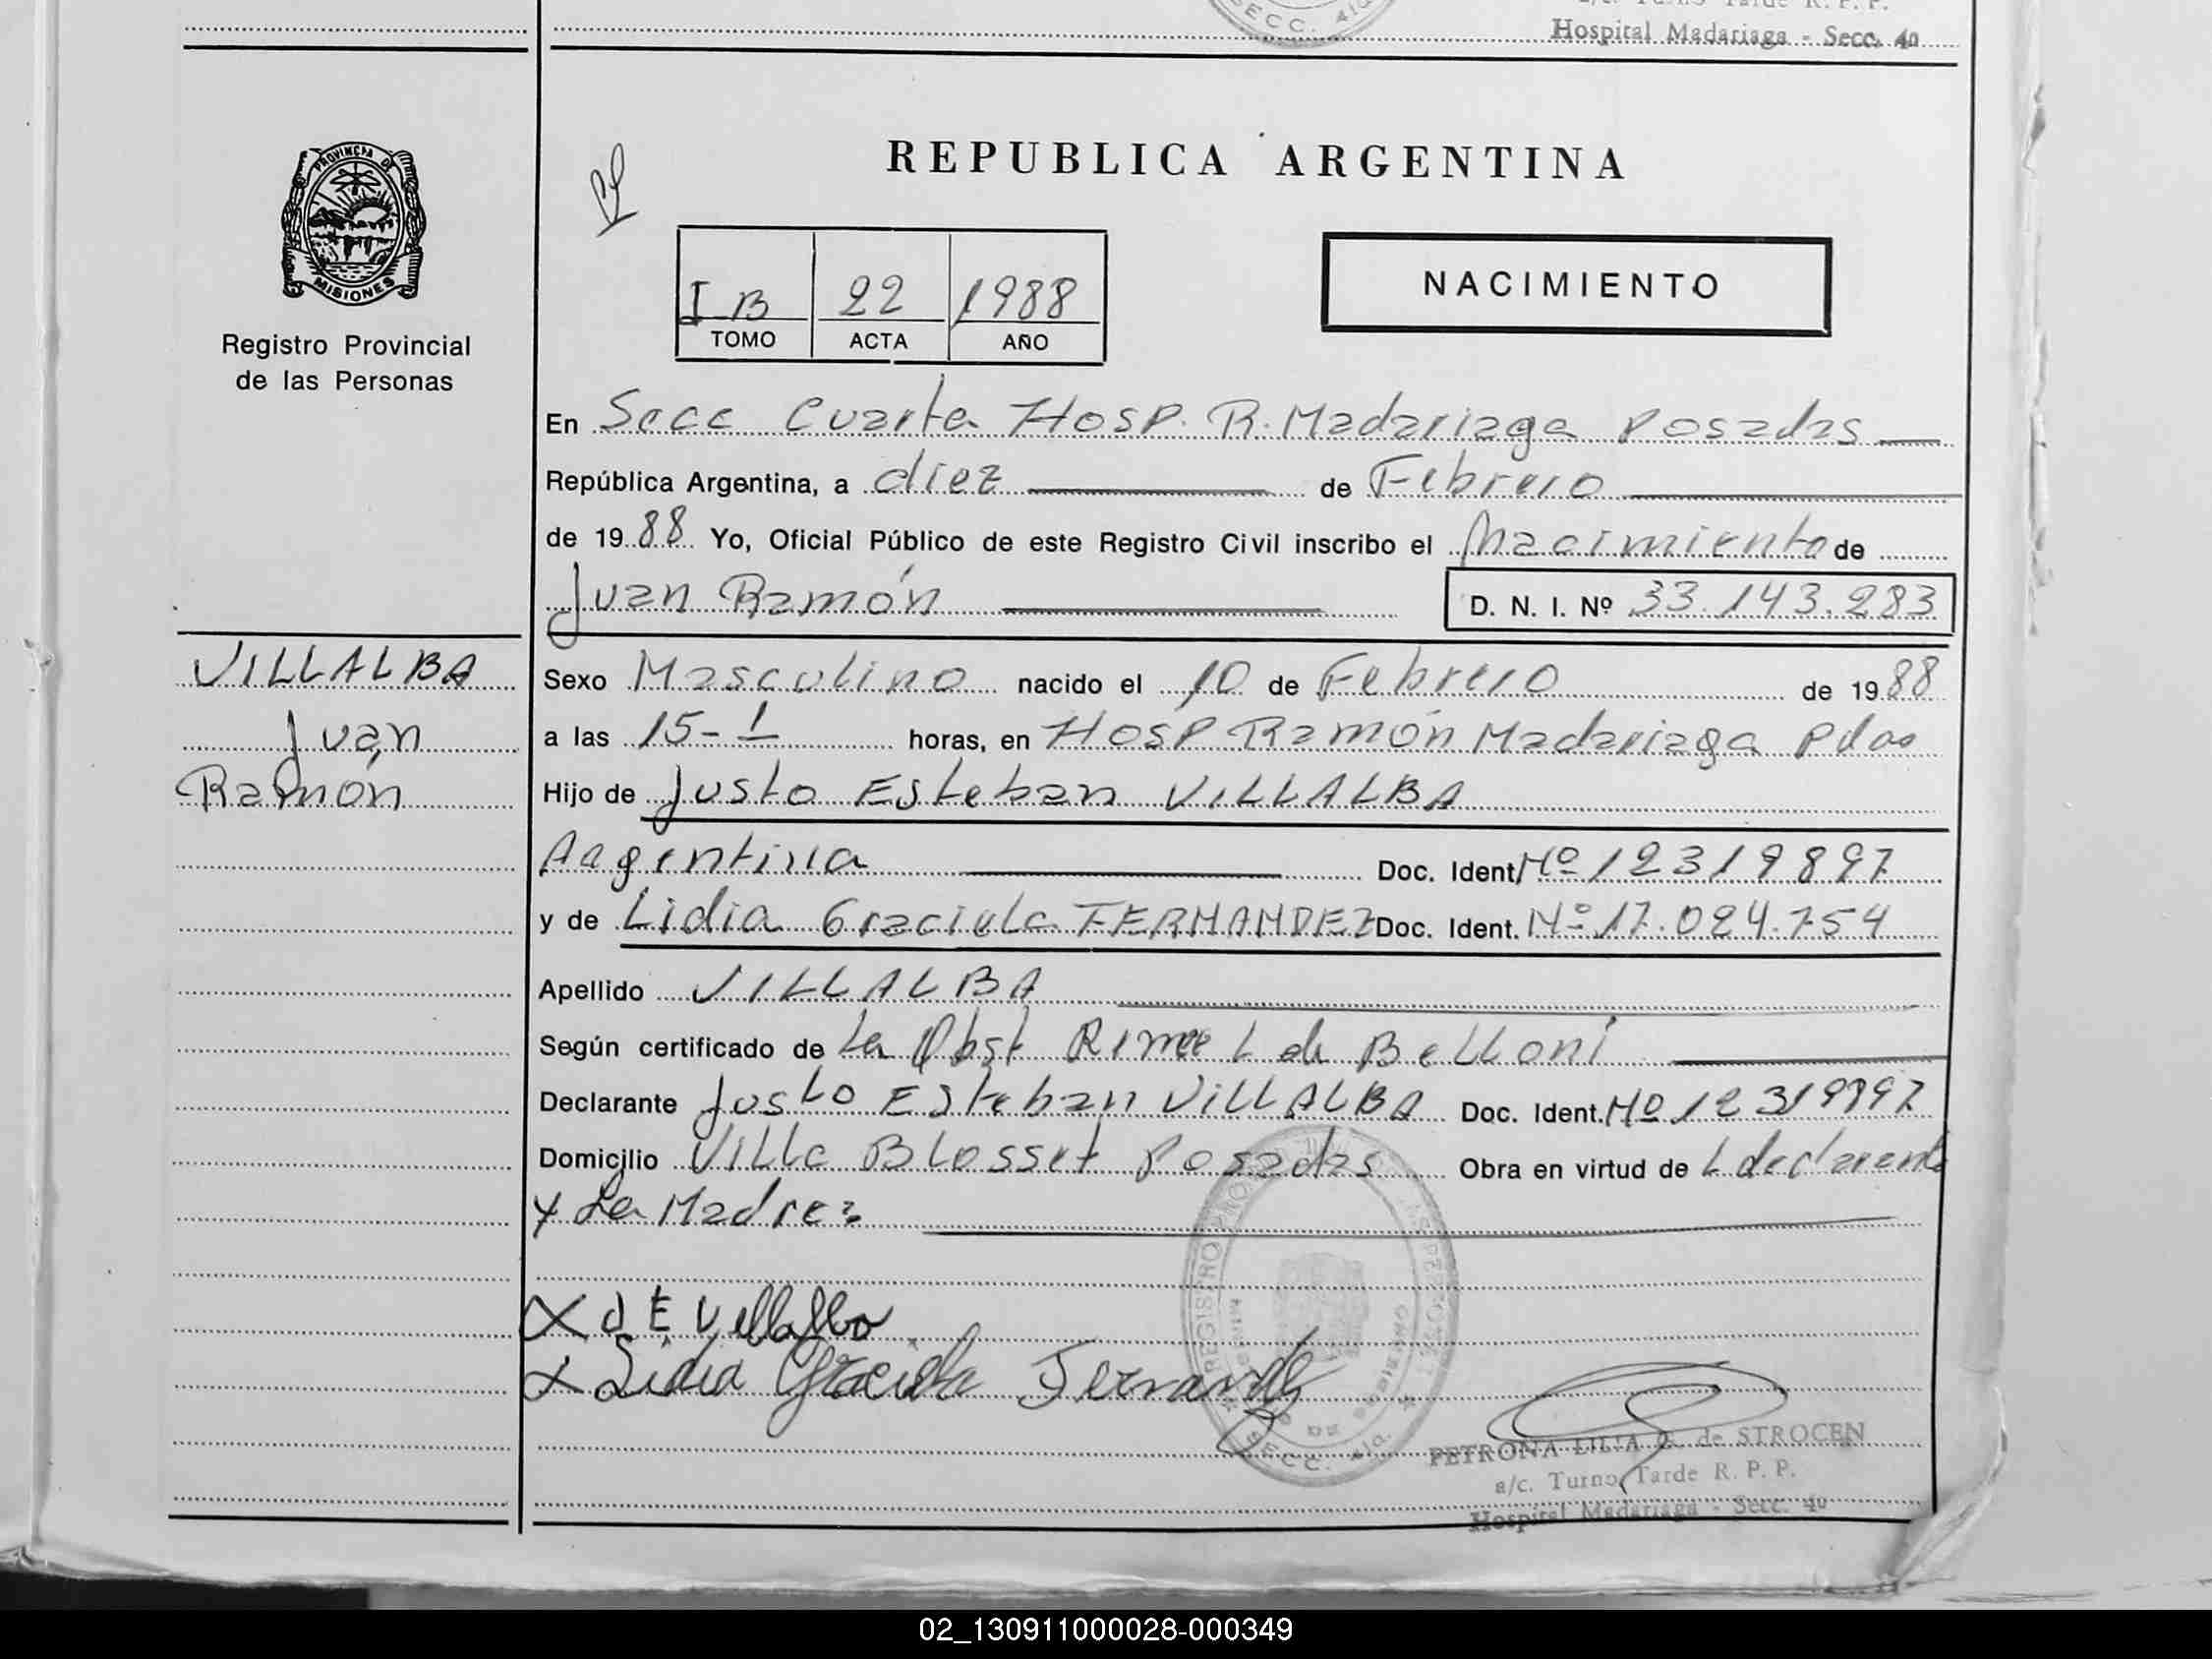 SECC. 4ta
Hospital Madariaga - Secc. 4a
PROVINCIA DE
MISIONES
Registro Provincial
de las Personas
REPUBLICA ARGENTINA
I B 22 1988
TOMO ACTA AÑO
NACIMIENTO
En Secc Cuarta Hosp. R. Madariaga Posadas
República Argentina, a diez de Febrero
de 1988 Yo, Oficial Público de este Registro Civil inscribo el Nacimiento de
Juan Ramón D. N. I. Nº 33.143.283
VILLALBA
Juan
Ramón
Sexo Masculino nacido el 10 de Febrero de 1988
a las 15-1 horas, en Hosp Ramón Madariaga Pdas
Hijo de Justo Esteban VILLALBA
Argentina Doc. Ident Nº 12319897
y de Lidia Graciela FERNANDEZ Doc. Ident. Nº 17.024.754
Apellido VILLALBA
Según certificado de La Obst L de Belloni
Declarante Justo Esteban VILLALBA Doc. Ident. Nº 12319897
Domicilio Villa Blosset Posadas Obra en virtud de L declarante
y La Madre
X J E Villalba
X Lidia Graciela Fernandez
REGISTRO
SECC. 4ta.
PETRONA LILIA G. de STROCEN
a/c. Turno Tarde R. P. P.
Hospital Madariaga - Secc. 4a
02_130911000028-000349